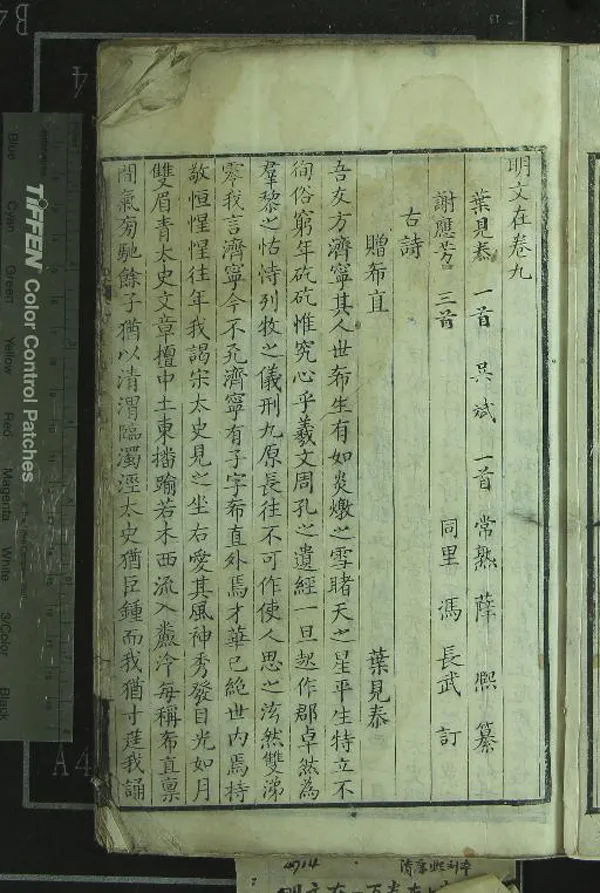 明文在卷九
葉見泰 一首 吳斌 一首 常熟 薛熙 纂
謝應芳 三首 同里 馮長武 訂
古詩
贈布直 葉見泰
吾友方濟寧其人世布生有如炎燉之雪睹天之星平生特立不
徇俗窮年矻矻惟究心乎羲文周孔之遺經一旦起作郡卓然為
羣黎之怙恃列牧之儀刑九原長往不可作使人思之泫然雙涕
零我言濟寧今不死濟寧有子字布直外焉才華已絕世內焉持
敬恒惺惺往年我謁宋太史見之坐右愛其風神秀發目光如月
雙眉青太史文章擅中土東擋踰若木西流入
泠每稱布直稟
間氣旁馳餘子猶以清渭臨濁涇太史猶巨鍾而我猶寸莛我誦
TIFFEN Color Control Patches
Blue Cyan Green Yellow Red Magenta White 3/Color Black
B4
A4
4714